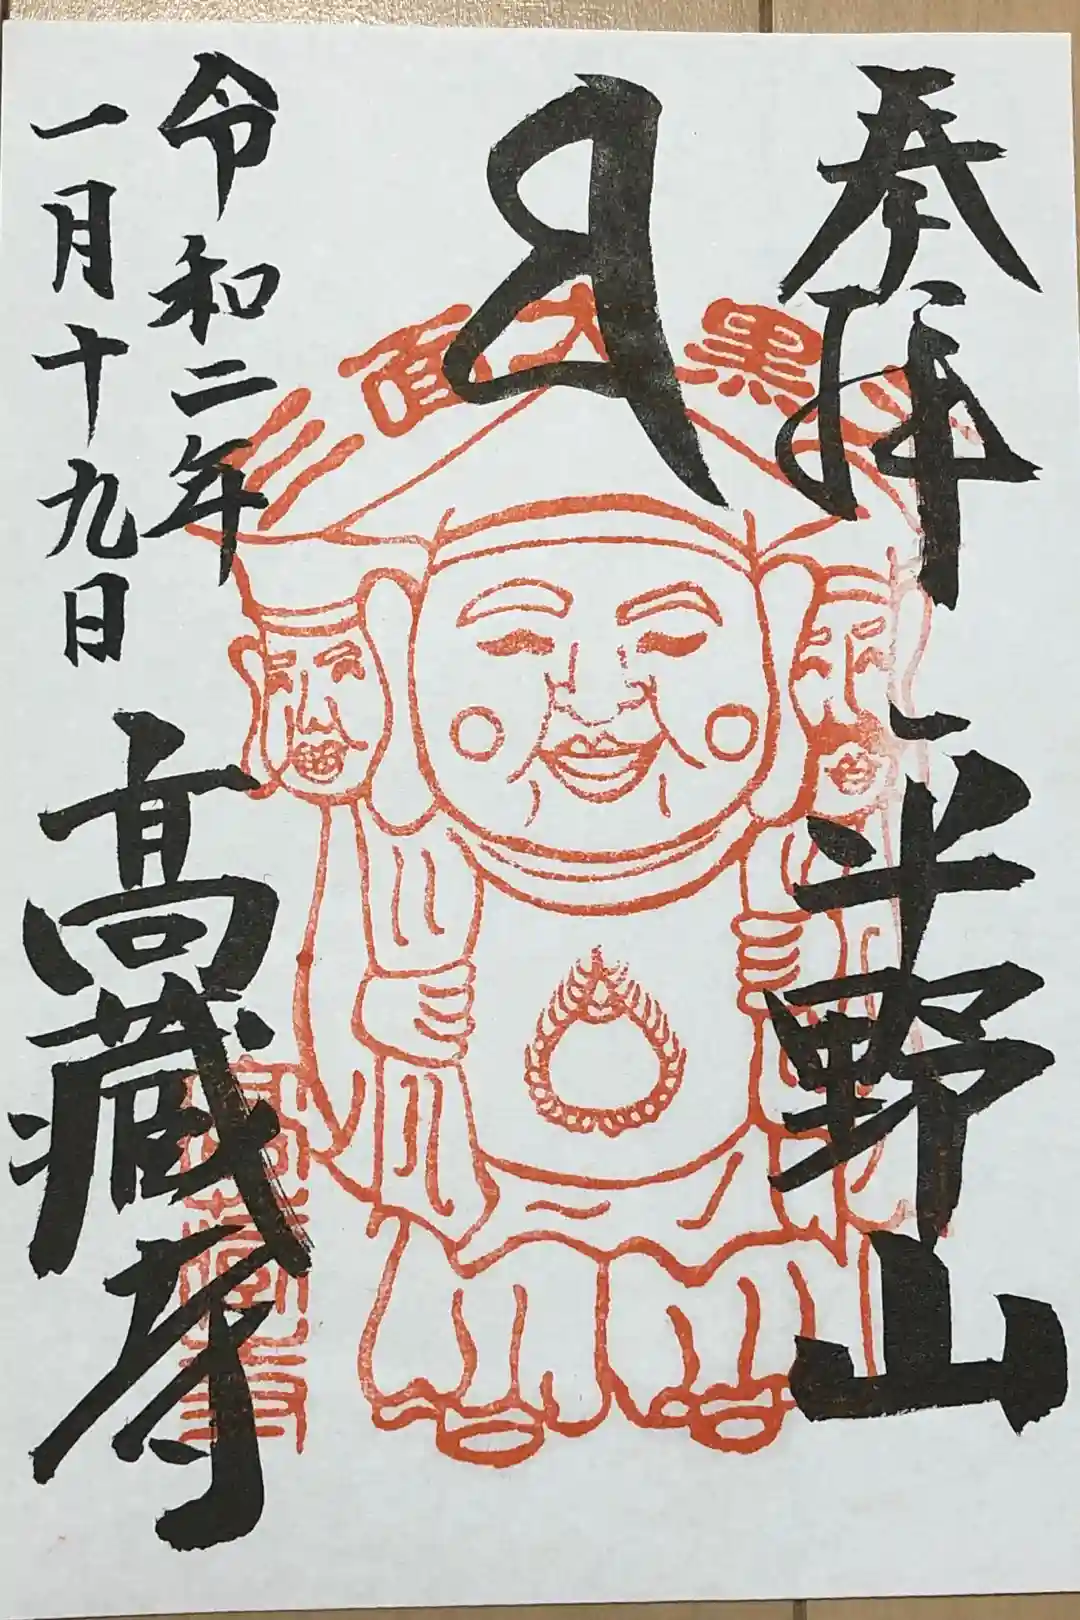 奉拝
平野山
三面大黒天
令和二年
一月十九日
髙藏寺